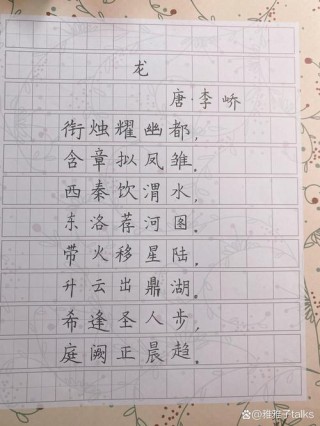 龙
唐·李峤
衔烛耀幽都,
含章拟凤雏.
西秦饮渭水,
东洛荐河图.
带火移星陆,
升云出鼎湖.
希逢圣人步,
庭阙正晨趋.
@雅雅子talks